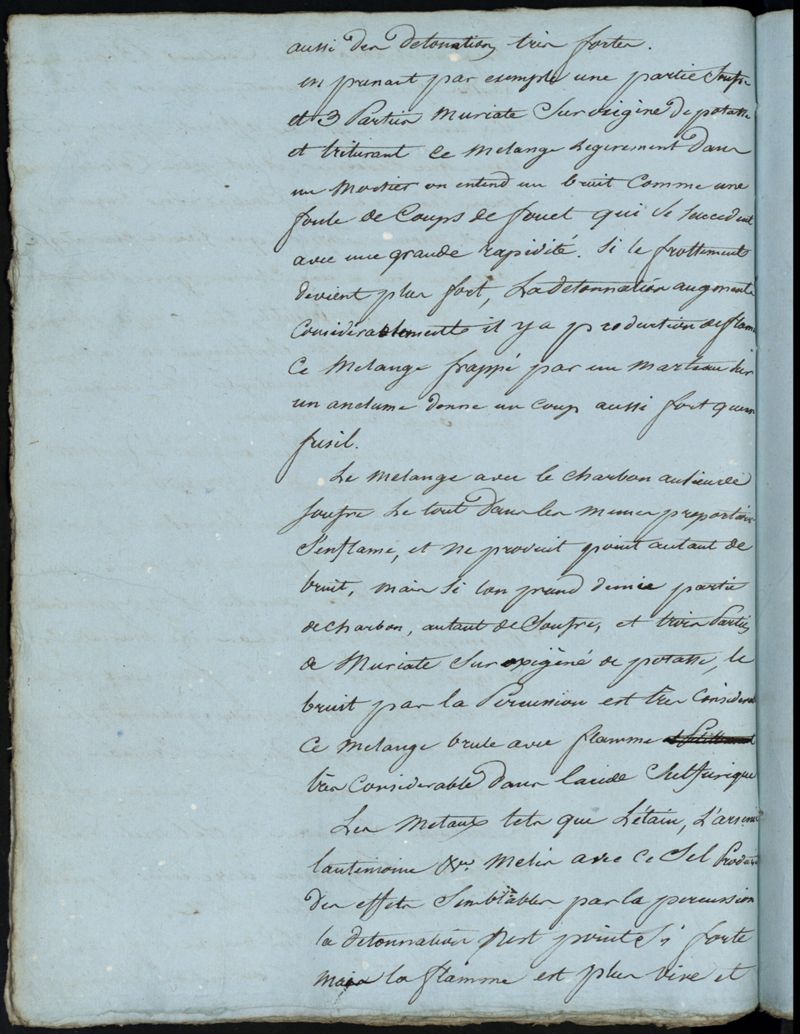 aussi des detonations très fortes.
en prenant par exemple une partie Soufre
et 3 Parties Muriate Suroxigène de potasse
et triturant ce mélange Legerement dans
un Mortier on entend un bruit Comme une
foule de Coups de fouet qui se succedent
avec une grande rapidité. Si le frottement
devient plus fort, La detonnation augmente
Considerablement et il y a production de flame
Ce Mélange frappé par un Marteau sur
un anclume donne un coup aussi fort qu'un
fusil.
Le Mélange avec le charbon aulieu de
soufre Le tout dans les memes proportions
S'enflame, et ne produit point autant de
bruit, mais si lon prend demie partie
de charbon, autant de Soufre, et trois Parties
de Muriate Suroxigèné de potasse, le
bruit par la Percussion est très Considerable
Ce melange brule avec flamme
très Considerable dans lacide Sulfurique
Les Metaux tels que L'étain, L'arsenic
lantimoine &c. Melés avec ce Sel Produisent
des effets Semblables par la percussion
la detonnation n'est point si forte
mais la flamme est plus vive et